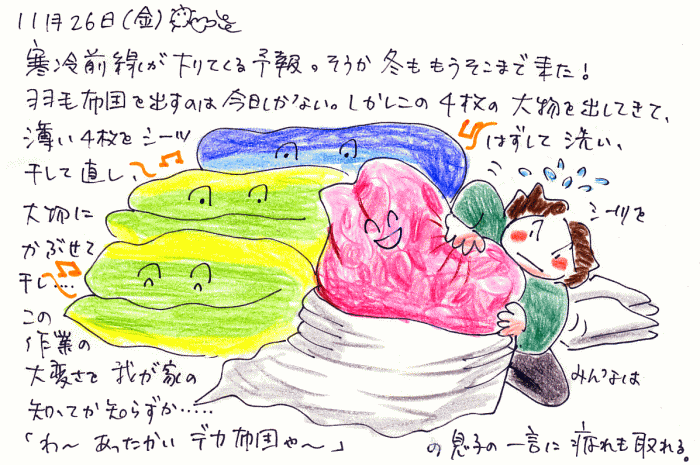 11月26日(金)
寒冷前線が下りてくる予報。そうか 冬も もうそこまで 来た!
羽毛布団を出すのは 今日しかない。しかしこの 4枚の 大物を出してきて、
薄い4枚をシーツ はずして 洗い、
干して直し、
大物に シーツを
かぶせて
干し....
この
作業の
大変さを 我が家の みんなは
知ってか知らずか.....
「わ~ あったかい デカ布団や~」 の 息子の 一言に 疲れも取れる。